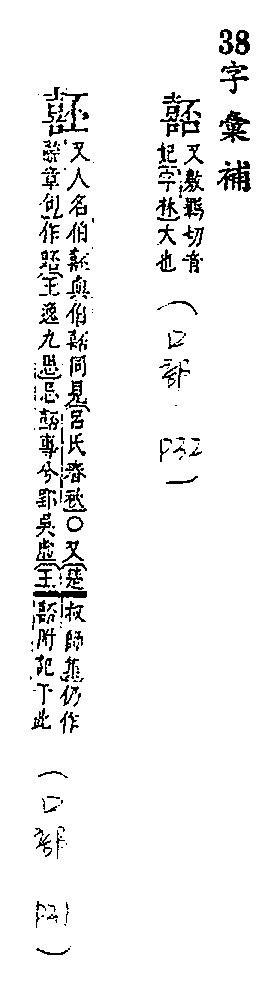 38字彙補
嚭 又敷羈切音
妃字林大也
(口部.P32)
噽 又人名伯噽與伯嚭同見呂氏春秋○又楚
辭章句作噽王逸九思忌嚭專兮郢吳虛王
叔師集仍作
嚭附記于此
(口部 P31)